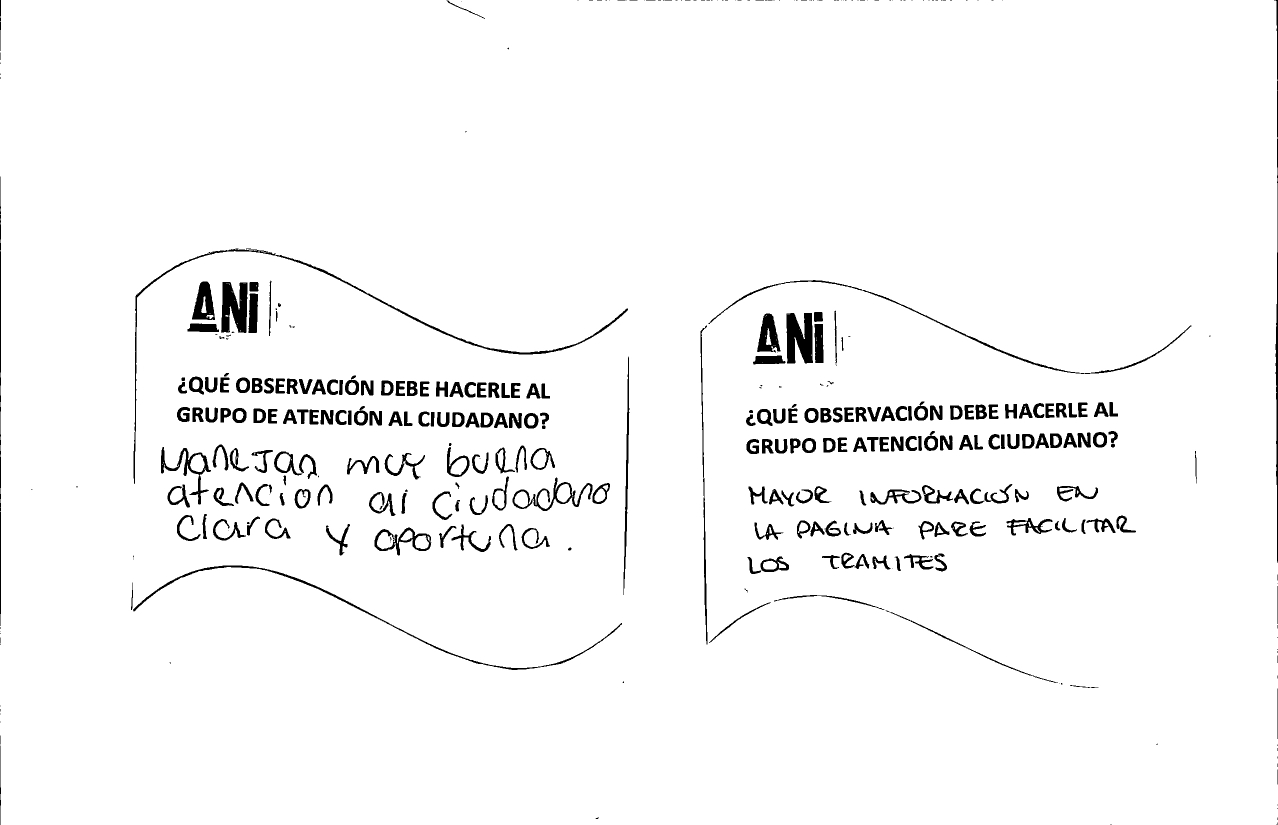 ANi
¿QUÉ OBSERVACIÓN DEBE HACERLE AL
GRUPO DE ATENCIÓN AL CIUDADANO?
Manejan muy buena
atencion al ciudadano
clara y oportuna.
ANi
¿QUÉ OBSERVACIÓN DEBE HACERLE AL
GRUPO DE ATENCIÓN AL CIUDADANO?
MAYOR INFORMACIÓN EN
LA PAGINA PARE FACILITAR
LOS TRAMITES